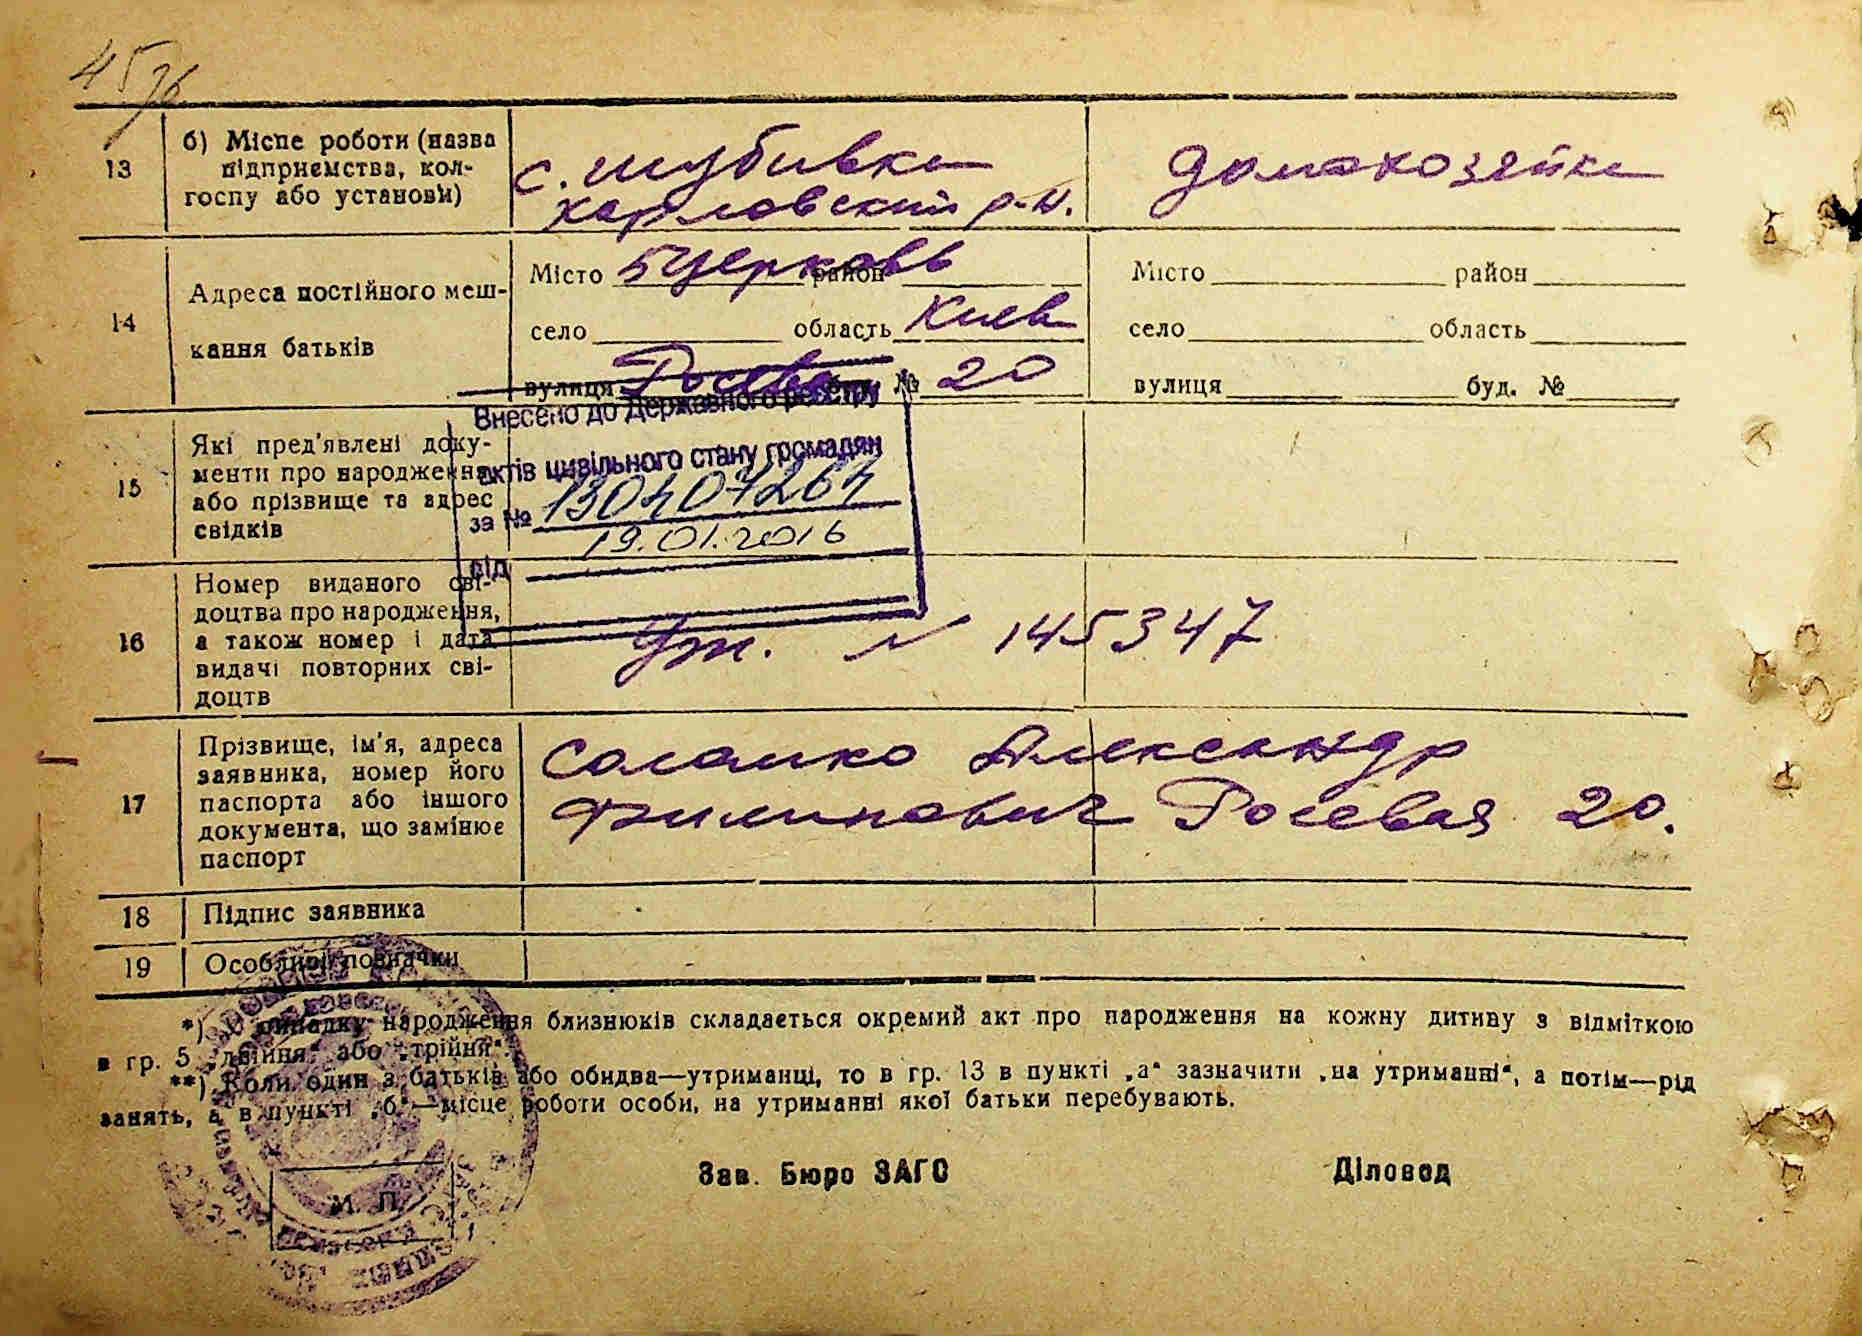 45
13
б) Місце роботи (назва
підприємства, кол-
госпу або установи)
с. Шубивка
харловский р-н.
домохозяйка
14
Адреса постійного меш-
кання батьків
Місто Бцерковь район
село область Киев
вулиця Росева буд. № 20
Місто район
село область
вулиця буд. №
Внесено до Державного реєстру
актів цивільного стану громадян
за №
19.01.2016
від
15
Які пред'явлені доку-
менти про народження
або прізвище та адрес
свідків
16
Номер виданого сві-
доцтва про народження,
а також номер і дата
видачі повторних сві-
доцтв
№ 145347
17
Прізвище, ім'я, адреса
заявника, номер його
паспорта або іншого
документа, що замінює
паспорт
Александр
Филипович Росевая 20.
18
Підпис заявника
19
Особливі позначки
*) У випадку народження близнюків складається окремий акт про народження на кожну дитину з відміткою
в гр. 5 „двійня" або „трійня".
**) Коли один з батьків або обидва—утриманці, то в гр. 13 в пункті „а" зазначити „на утриманні", а потім—рід
занять, а в пункті „б"—місце роботи особи, на утриманні якої батьки перебувають.
Зав. Бюро ЗАГС
Діловод
М. П.